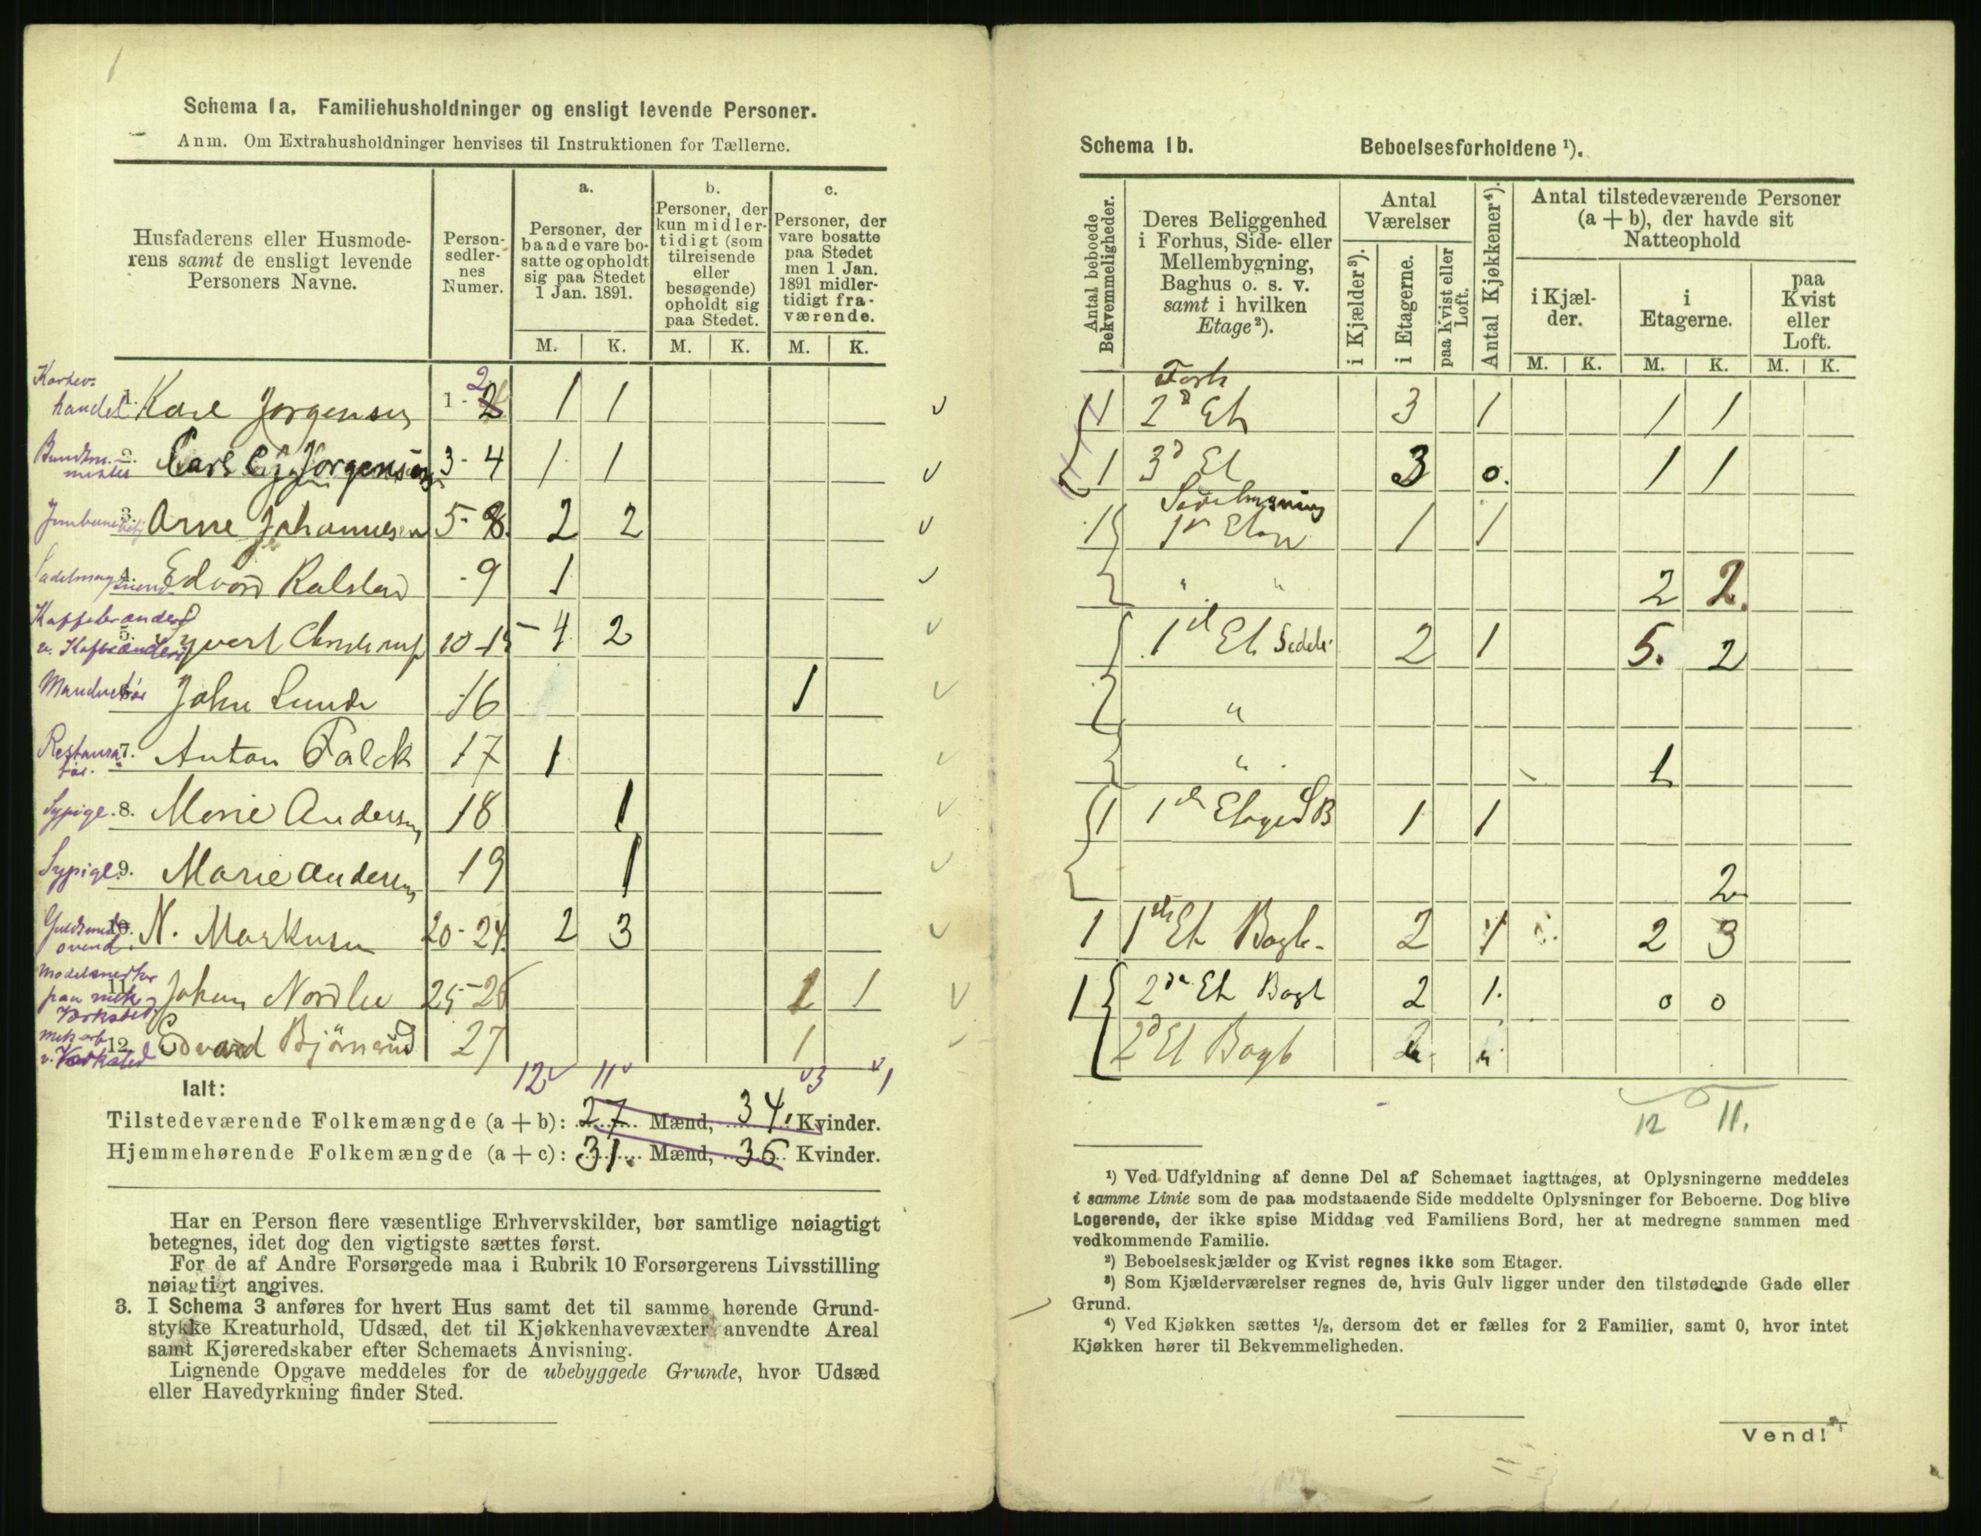 1
Schema 1a. Familiehusholdninger og ensligt levende Personer.
Anm. Om Extrahusholdninger henvises til Instruktionen for Tællerne.
Husfaderens eller Husmode-
rens samt de ensligt levende
Personers Navne.
Person-
sedler-
nes
Numer.
a.
Personer, der
baade vare bo-
satte og opholdt
sig paa Stedet
1 Jan. 1891.
b.
Personer, der
kun midler-
tidigt (som
tilreisende
eller
besøgende)
opholdt sig
paa Stedet.
c.
Personer, der
vare bosatte
paa Stedet
men 1 Jan.
1891 midler-
tidigt fra-
værende.
M. K. M. K. M. K.
handel 1. Karl Jørgensen 1-2 1 1
2. Carl Jørgensen 3-4 1 1
3. Arne Johannesen 5-8. 2 2
4. Edvard Ralstad -9 1
5. 10-15 4 2
6. John Lunde -16 1
Restaura
tør. 7. Anton Falck 17 1
Sypige. 8. Marie Andersen 18 1
Sypige. 9. Marie Andersen 19 1
10. N. Markusen 20-24 2 3
Modelsnedker
paa mek.
Værksted 11. Johan Nordlie 25-26 1 1
mek arb
v. Værksted 12. Edvard Bjørnerud 27 1
Ialt: 12 11 3 1
Tilstedeværende Folkemængde (a + b): 27 Mænd, 34. Kvinder.
Hjemmehørende Folkemængde (a + c): 31. Mænd, 36 Kvinder.
Har en Person flere væsentlige Erhvervskilder, bør samtlige nøiagtigt
betegnes, idet dog den vigtigste sættes først.
For de af Andre Forsørgede maa i Rubrik 10 Forsørgerens Livsstilling
nøiagtigt angives.
3. I Schema 3 anføres for hvert Hus samt det til samme hørende Grund-
stykke Kreaturhold, Udsæd, det til Kjøkkenhavevæxter anvendte Areal
samt Kjøreredskaber efter Schemaets Anvisning.
Lignende Opgave meddeles for de ubebyggede Grunde, hvor Udsæd
eller Havedyrkning finder Sted.
Schema 1b. Beboelsesforholdene ¹).
Antal beboede
Bekvemmeligheder.
Deres Beliggenhed
i Forhus, Side- eller
Mellembygning,
Baghus o. s. v.
samt i hvilken
Etage ²).
Antal
Værelser
i Kjælder ³).
i Etagerne.
paa Kvist eller
Loft.
Antal Kjøkkener ⁴).
Antal tilstedeværende Personer
(a + b), der havde sit
Natteophold
i Kjæl-
der.
i
Etagerne.
paa
Kvist
eller
Loft.
M. K. M. K. M. K.
Forh
1 2d Et 3 1 1 1
1 3d Et 3 0. 1 1
Sidebygning
1 1st Etage 1 1
" " 2 2.
1 Et Sideb. 2 1 5. 2
"
" 1
1 1 Etage S B 1 1
2
1 1 Et Bagb. 2 1 2 3
1 2den Et Bagb 2 1. 0 0
2d Et Bagb "
12 11.
¹) Ved Udfyldning af denne Del af Schemaet iagttages, at Oplysningerne meddeles
i samme Linie som de paa modstaaende Side meddelte Oplysninger for Beboerne. Dog blive
Logerende, der ikke spise Middag ved Familiens Bord, her at medregne sammen med
vedkommende Familie.
²) Beboelseskjælder og Kvist regnes ikke som Etager.
³) Som Kjælderværelser regnes de, hvis Gulv ligger under den tilstødende Gade eller
Grund.
⁴) Ved Kjøkken sættes ½, dersom det er fælles for 2 Familier, samt 0, hvor intet
Kjøkken hører til Bekvemmeligheden.
Vend!